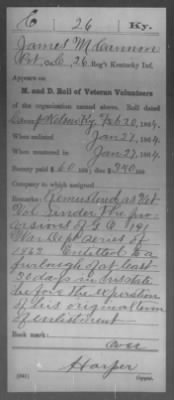 C 26 Ky.
James M Cannon
Pvt, Co. C, 26 Reg't Kentucky Inf.
Appears on
M. and D. Roll of Veteran Volunteers
of the organization named above. Roll dated
Camp Nelson Ky Feb 20, 1864.
When enlisted Jan 27, 1864.
When mustered in Jan 27, 1864.
Bounty paid $ 60 100; due $ 340 100
Company to which assigned
Remarks: Remustered as Vet
Vol. under the pro
visions of G.O. 191
War Dept series of
1863. Entitled to a
furlough of at least
30 days in his state
before the expiration
of his original term
of enlistment
Book mark:
over
Harper
(341) Copyist.